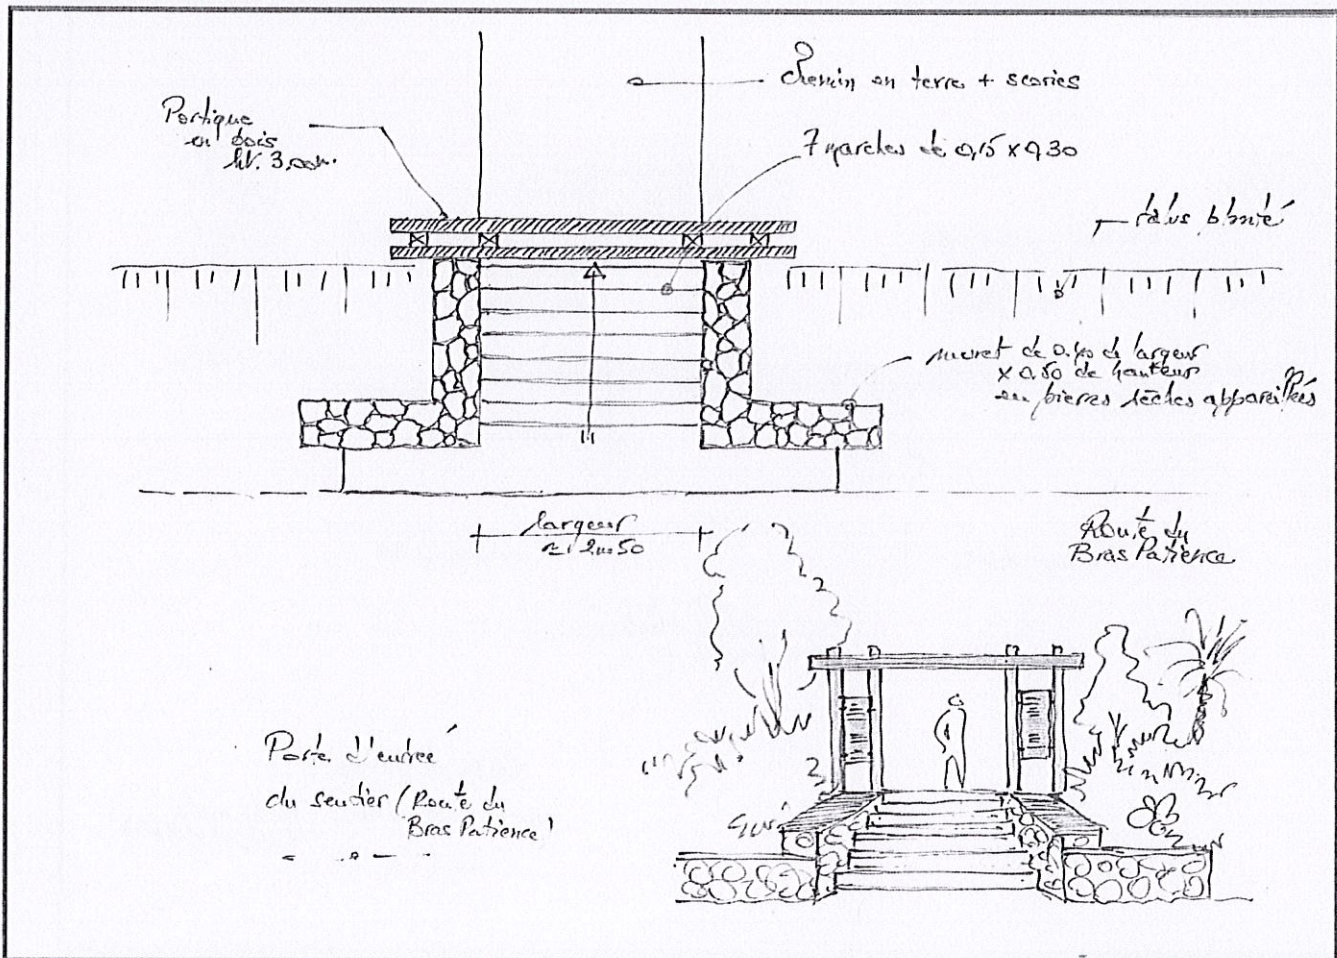 Chemin en terre + scories
Portique
en bois
ht. 3,00m.
7 marches de 0,15 x 0,30
talus planté
muret de 0.40 de largeur
x 0.50 de hauteur
en pierres sèches appareillées
largeur
2m50
Route du
Bras Patience
Porte d'entrée
du sentier (Route du
Bras Patience)